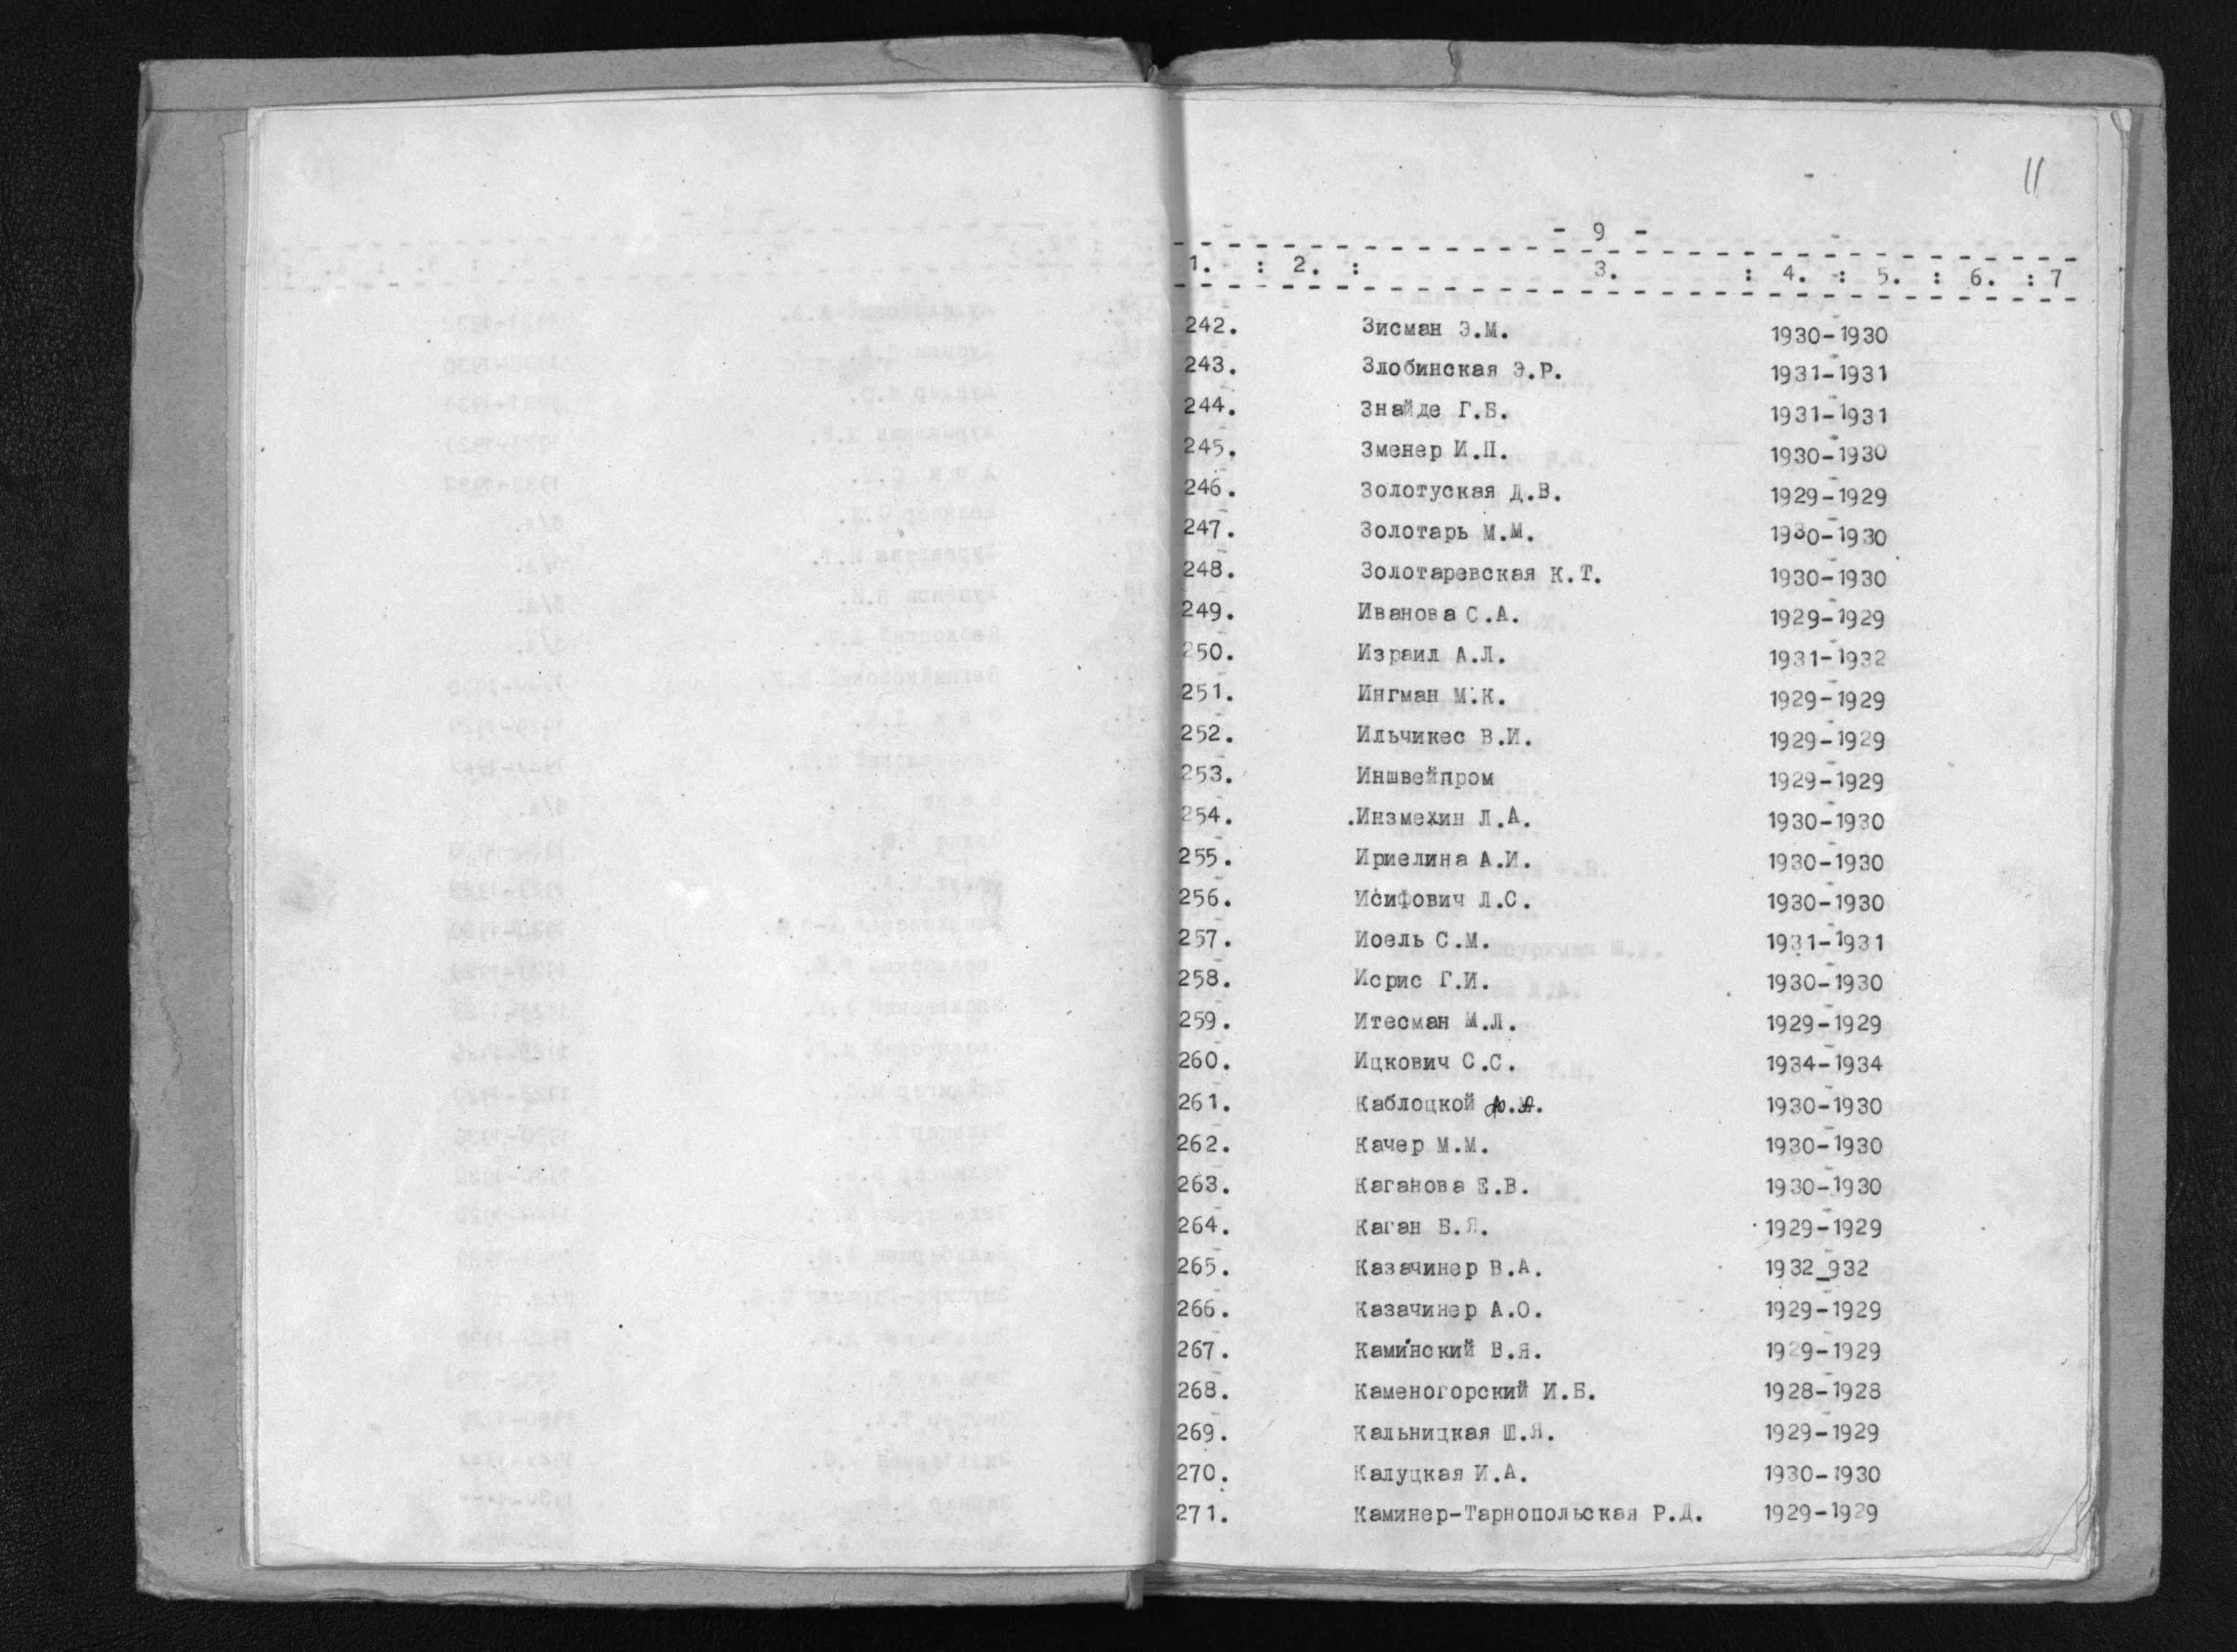 11
- 9 -
1. : 2. : 3. : 4. : 5. : 6. : 7
242. Зисман Э.М. 1930-1930
243. Злобинская Э.Р. 1931-1931
244. Знайде Г.Б. 1931-1931
245. Зменер И.П. 1930-1930
246. Золотуская Д.В. 1929-1929
247. Золотарь М.М. 1930-1930
248. Золотаревская К.Т. 1930-1930
249. Иванова С.А. 1929-1929
250. Израил А.Л. 1931-1932
251. Ингман М.К. 1929-1929
252. Ильчикес В.И. 1929-1929
253. Иншвейпром 1929-1929
254. Инзмехин Л.А. 1930-1930
255. Ириелина А.И. 1930-1930
256. Исифович Л.С. 1930-1930
257. Иоель С.М. 1931-1931
258. Исрис Г.И. 1930-1930
259. Итесман М.Л. 1929-1929
260. Ицкович С.С. 1934-1934
261. Каблоцкой 1930-1930
262. Качер М.М. 1930-1930
263. Каганова Е.В. 1930-1930
264. Каган Б.Я. 1929-1929
265. Казачинер В.А. 1932_932
266. Казачинер А.О. 1929-1929
267. Каминский В.Я. 1929-1929
268. Каменогорский И.Б. 1928-1928
269. Кальницкая Ш.Я. 1929-1929
270. Калуцкая И.А. 1930-1930
271. Каминер-Тарнопольская Р.Д. 1929-1929